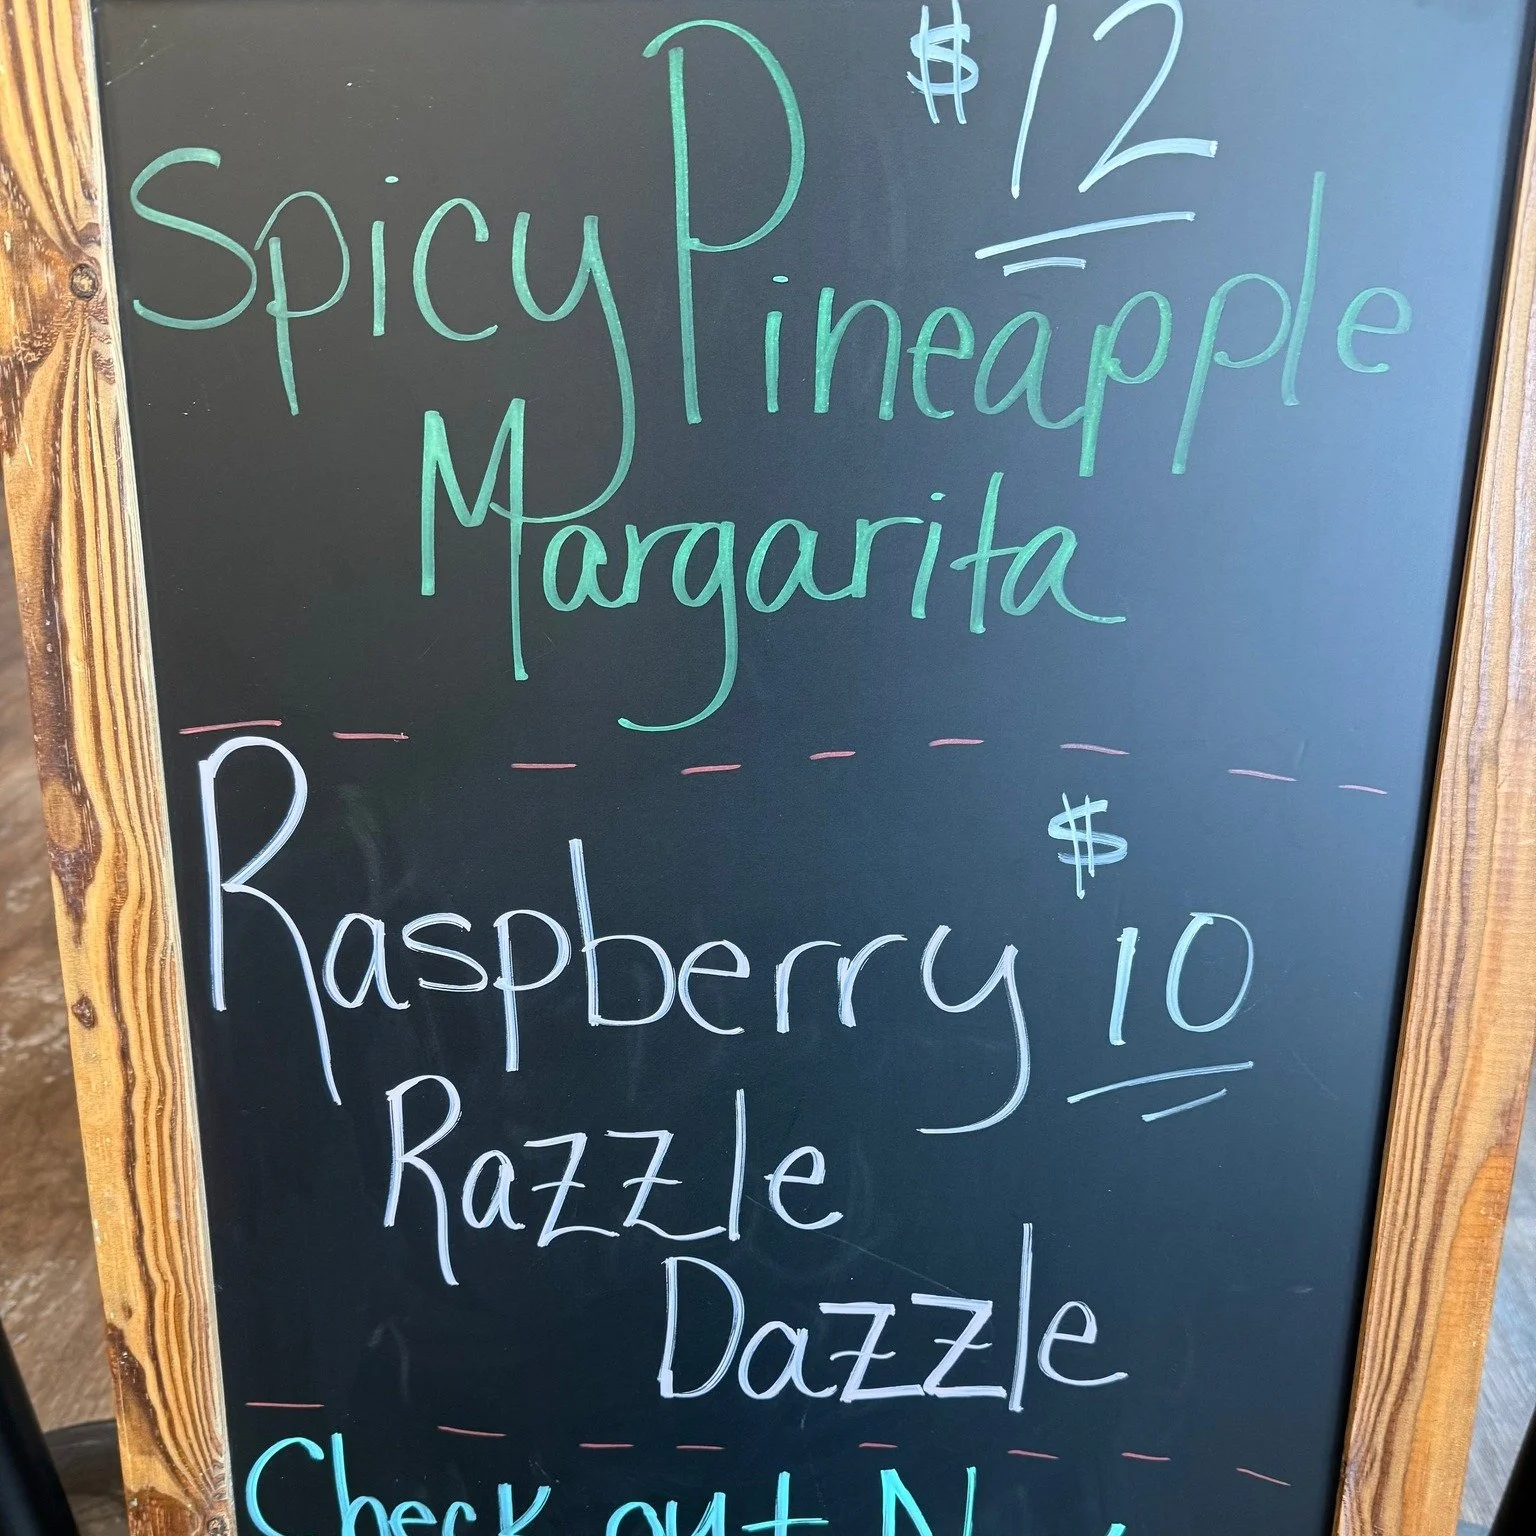 $12
Spicy Pineapple
Margarita
Raspberry $10
Razzle
Dazzle
Check out